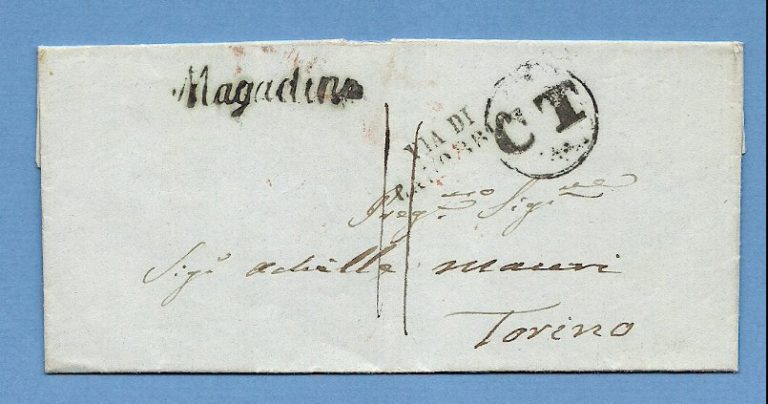 Magadino
VIA DI
CT
Preg.mo Sig.re
Sig.r Achille Mauri
Torino